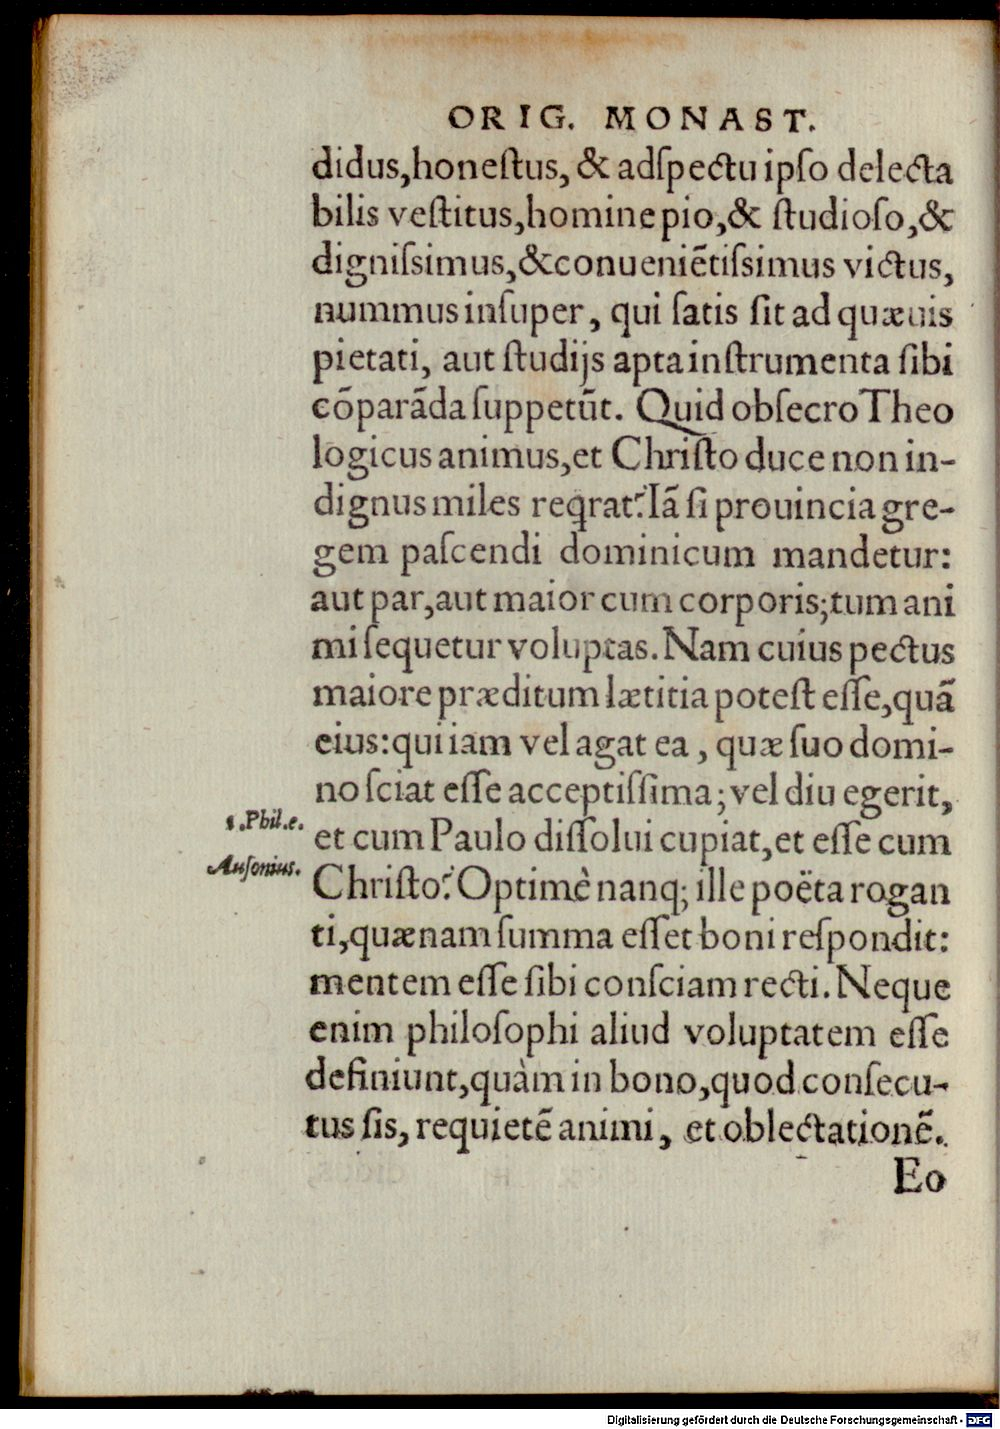 ORIG. MONAST.
didus, honeſtus, & adſpectu ipſo delecta
bilis veſtitus, homine pio, & ſtudioſo, &
digniſsimus, & conueniẽtiſsimus victus,
nummus inſuper, qui ſatis ſit ad quæuis
pietati, aut ſtudijs apta inſtrumenta ſibi
cõparãda ſuppetũt. Quid obſecro Theo
logicus animus, et Chriſto duce non in-
dignus miles reqrat? Iã ſi prouincia gre-
gem paſcendi dominicum mandetur:
aut par, aut maior cum corporis; tum ani
mi ſequetur voluptas. Nam cuius pectus
maiore præditum lætitia poteſt eſſe, quã
eius: qui iam vel agat ea, quæ ſuo domi-
no ſciat eſſe acceptiſſima; vel diu egerit,
1. Phil. e.
et cum Paulo diſſolui cupiat, et eſſe cum
Auſonius.
Chriſto? Optimè nanq; ille poëta rogan
ti, quænam ſumma eſſet boni reſpondit:
mentem eſſe ſibi conſciam recti. Neque
enim philoſophi aliud voluptatem eſſe
definiunt, quàm in bono, quod conſecu-
tus ſis, requietẽ animi, et oblectationẽ.
Eo
Digitalisierung gefördert durch die Deutsche Forschungsgemeinschaft - DFG